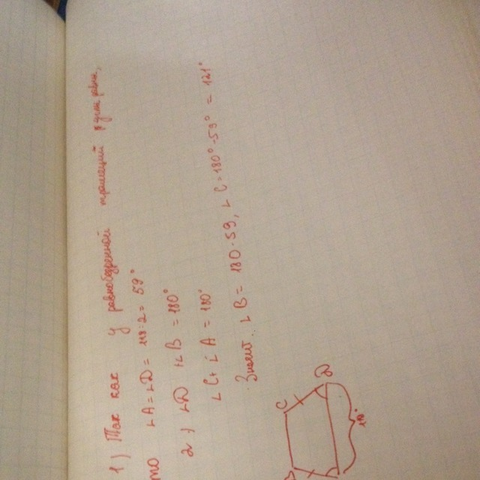 1) Так как у равнобедренной трапеции углы равны,
то ∠A=∠D = 118:2= 59°
2) ∠D +∠B = 180°
∠C+∠A = 180°
Значит: ∠B = 180-59, ∠C=180°-59° = 121°
C
D